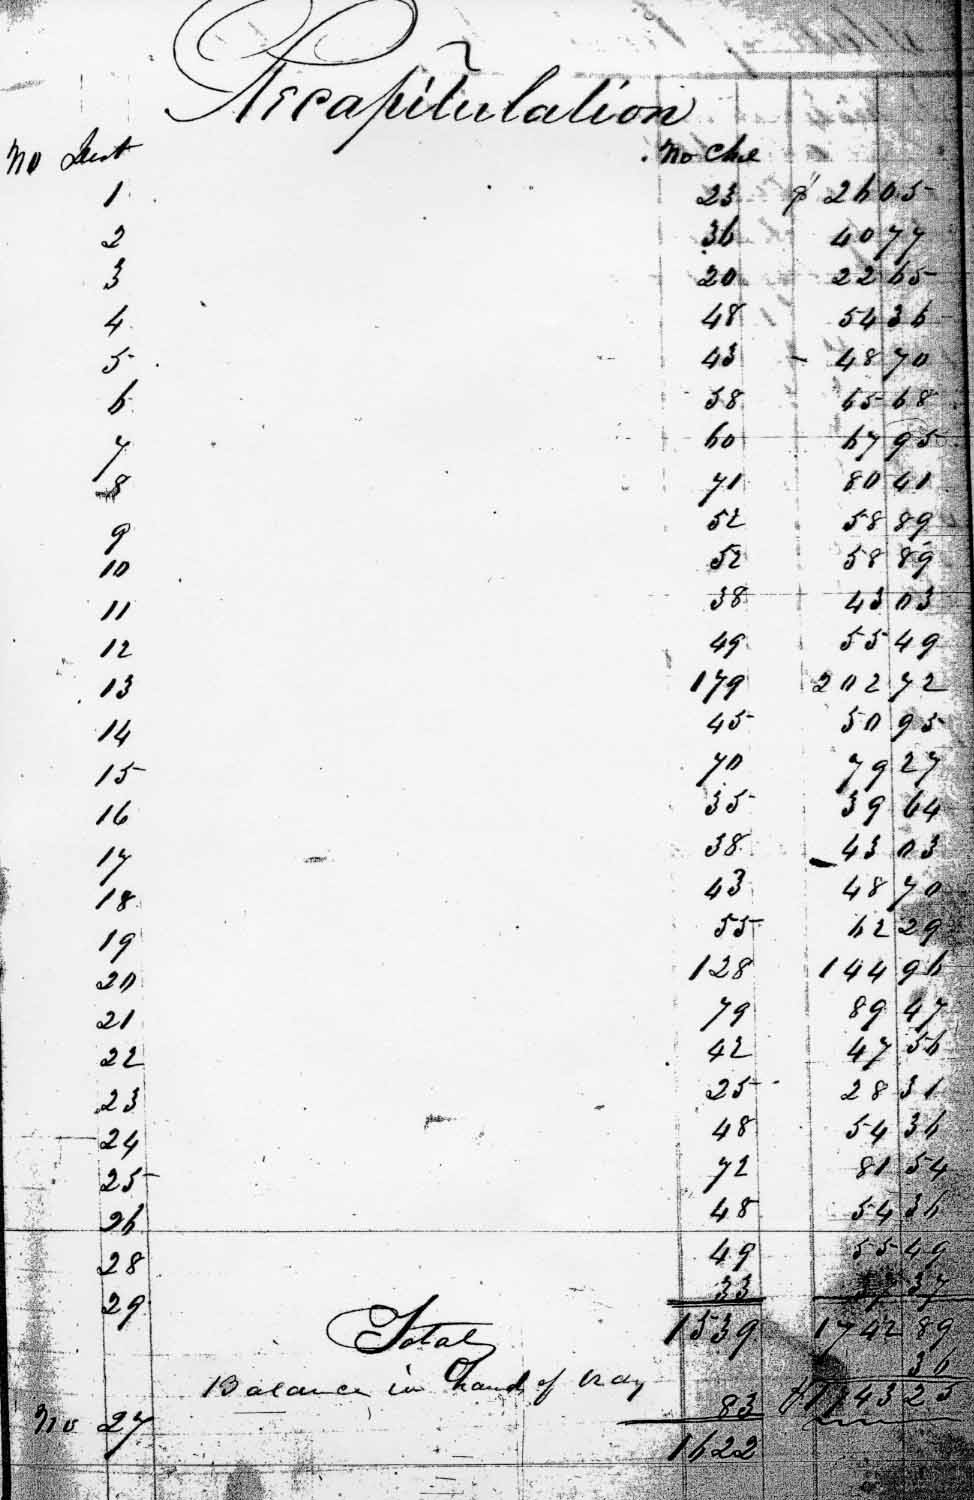 Recapitulation
No Dist No Chil
1 23 $ 26 05
2 36 40 77
3 20 22 65
4 48 54 36
5 43 48 70
6 58 65 68
7 60 67 95
8 71 80 41
9 52 58 89
10 52 58 89
11 38 43 03
12 49 55 49
13 179 202 72
14 45 50 95
15 70 79 27
16 35 39 64
17 38 43 03
18 43 48 70
19 55 62 29
20 128 144 96
21 79 89 47
22 42 47 56
23 25 28 31
24 48 54 36
25 72 81 54
26 48 54 36
28 49 55 49
29 33 37 37
Total 1539 1742 89
36
Balance in hands of tray
No 27 83 $1743 25
1622